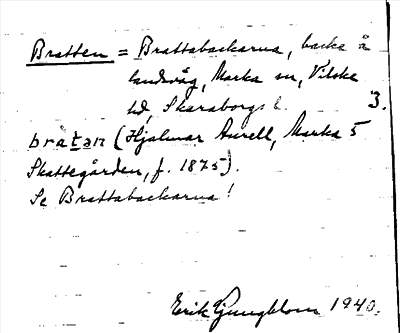 Bratten = Brattabackarna, backe å
landsväg, Marka sn, Vilske
hd, Skaraborgs l. 3.
bràtan (Hjalmar Aurell, Marka 5
Skattegården, f. 1875).
Se Brattabackarna!
Erik Ljungblom 1940.